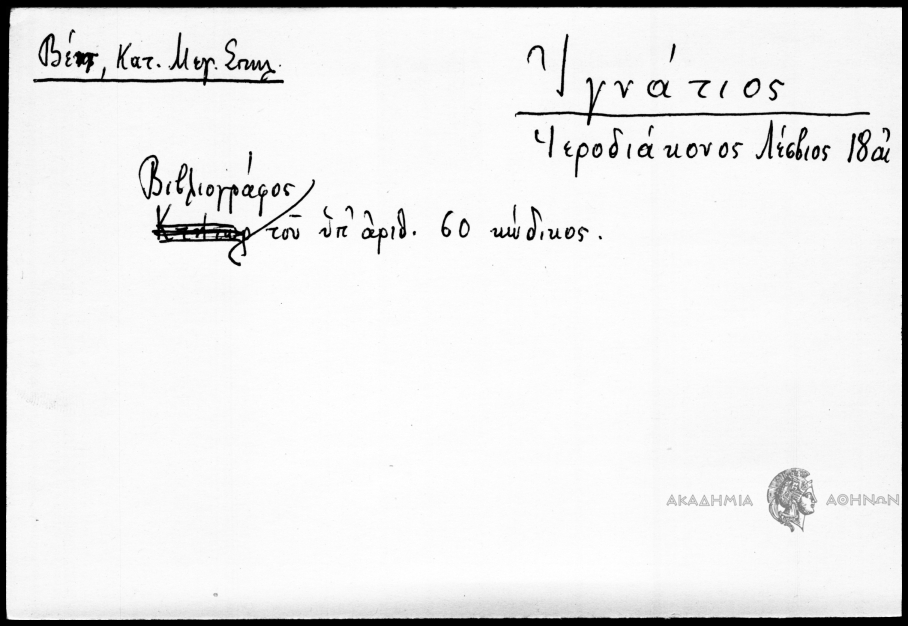 Βέη, Κατ. Μεγ. Σπηλ.
Ἰγνάτιος
Ἱεροδιάκονος Λέσβιος 18 αἰ
Βιβλιογράφος
Κτήτωρ τοῦ ὑπ' ἀριθ. 60 κώδικος.
ΑΚΑΔΗΜΙΑ ΑΘΗΝΩΝ